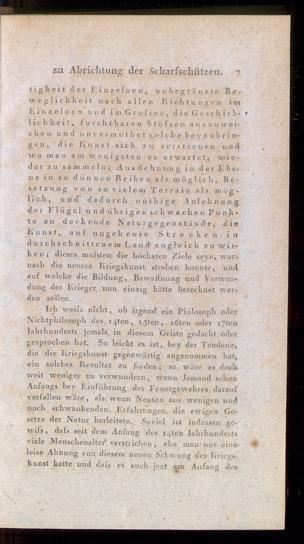 zu Abrichtung der Scharfschützen. 7
tigkeit der Einzelnen, unbegränzte Be-
weglichkeit nach allen Richtungen im
Einzelnen und im Großen, die Geschick-
lichkeit, furchtbaren Stößen auszuwei-
chen und unvermuthet solche beyzubrin-
gen, die Kunst sich zu zerstreuen und
wo man am wenigsten es erwartet, wie-
der zu sammeln; Ausdehnung in der Ebe-
ne in so dünnen Reihen als möglich, Be-
setzung von so vielem Terrain als mög-
lich, und dadurch nöthige Anlehnung
der Flügel und übrigen schwachen Punk-
te an deckende Naturgegenstände, die
Kunst, auf ungeheure Strecken in
durchschnittenem Land zugleich zu wir-
ken; dieses mußten die höchsten Ziele seyn, wor-
nach die neuere Kriegskunst streben konnte, und
auf welche die Bildung, Bewaffnung und Verwen-
dung der Krieger nun einzig hätte berechnet wer-
den sollen.
Ich weiß nicht, ob irgend ein Philosoph oder
Nichtphilosoph des 14ten, 15ten, 16ten oder 17ten
Jahrhunderts jemals, in diesem Geiste gedacht oder
gesprochen hat. So leicht es ist, bey der Tendenz,
die die Kriegskunst gegenwärtig angenommen hat,
ein solches Resultat zu finden; so wäre es doch
weit weniger zu verwundern, wenn Jemand schon
Anfangs bey Einführung des Feuergewehres darauf
verfallen wäre, als wenn Neuton aus wenigen und
noch schwankenden Erfahrungen die ewigen Ge-
setze der Natur herleitete. Soviel ist indessen ge-
wiß, daß seit dem Anfang des 14ten Jahrhunderts
viele Menschenalter verstrichen, ehe man nur eine
leise Ahnung von diesem neuen Schwung der Kriegs-
kunst hatte und daß es auch jezt am Anfang des